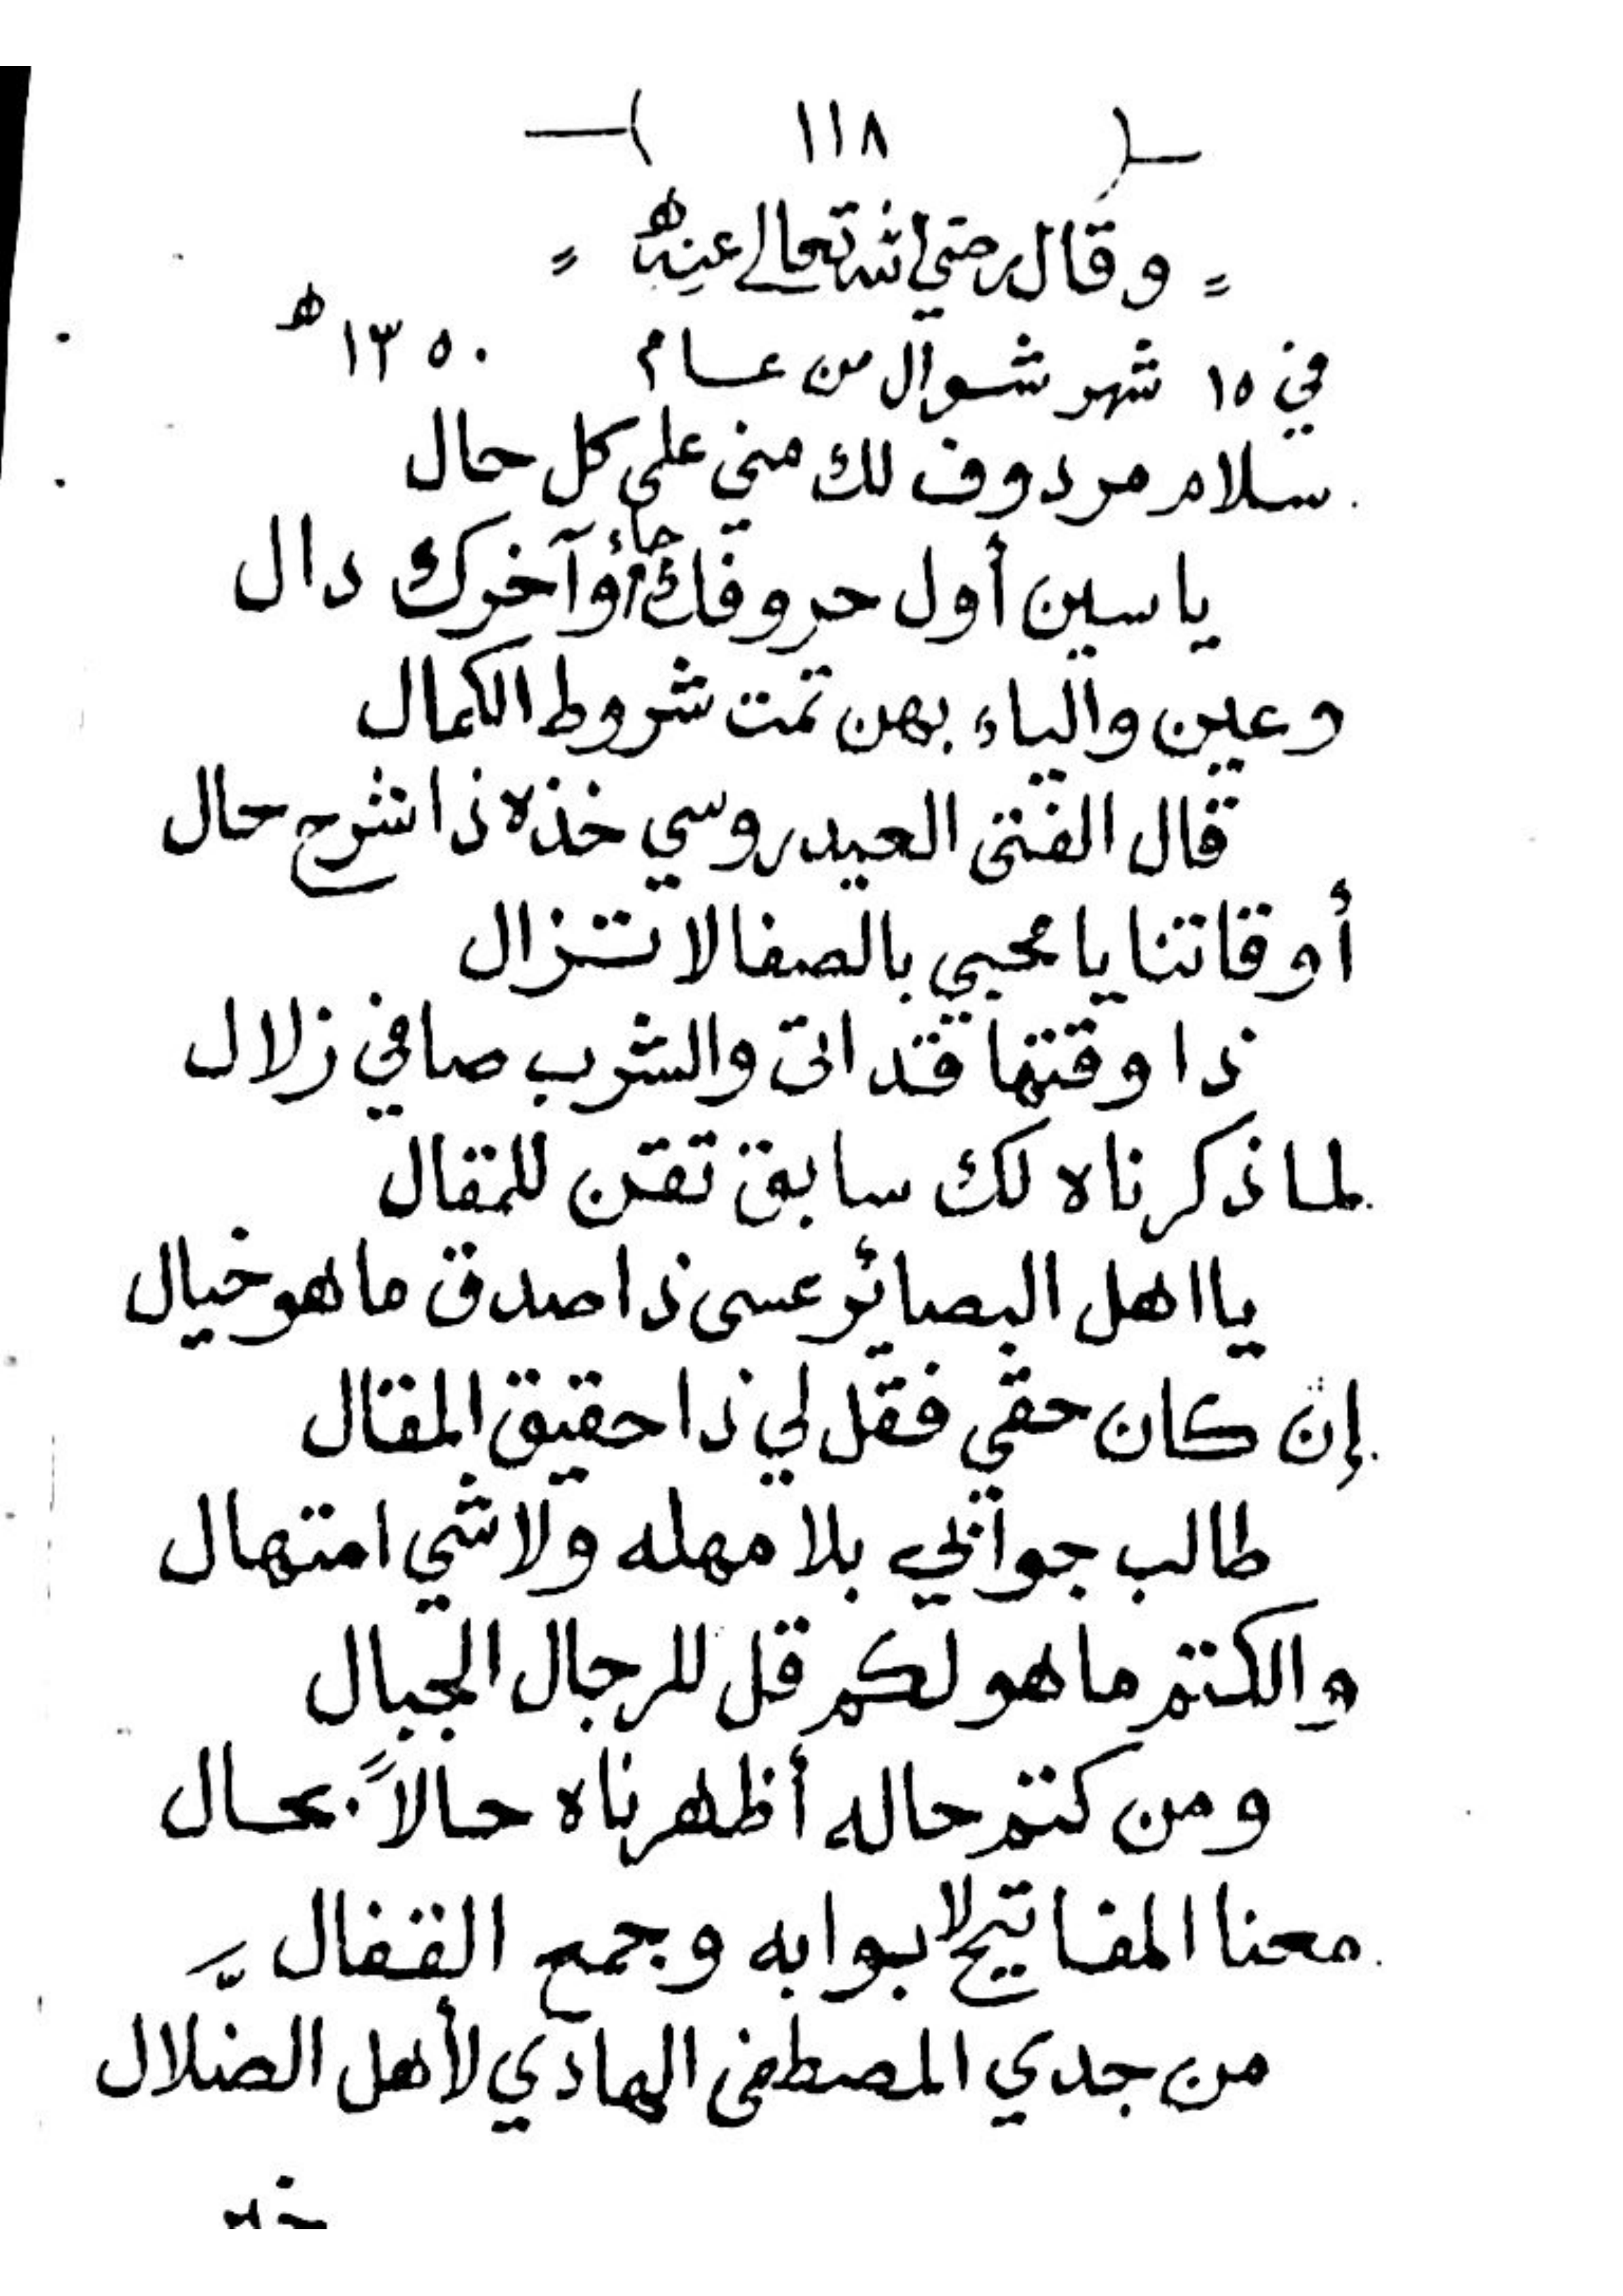 ١١٨
وقال رضي الله تعالى عنه
في ١٥ شهر شوال من عام ١٣٥٠ ه
سلام مردوف لك مني على كل حال
يا سين أول حروفك جاء وآخرك دال
وعين والياء بهن تمت شروط الكمال
قال الفتى العيدروسي خذه ذا شرح حال
أوقاتنا يا محبي بالصفا لا تزال
ذا وقتها قد اتى والشرب صافي زلال
لما ذكرناه لك سابق تقن للمقال
يا اهل البصائر عسى ذا صدق ما هو خيال
إن كان حقي فقل لي ذا حقيق المقال
طالب جوابي بلا مهله ولا شي امتهال
والكتم ما هو لكم قل للرجال الجبال
ومن كتم حاله أظهرناه حالاً بحال
معنا المفاتيح لابوابه وجمع القفال
من جدي المصطفى الهادي لأهل الضلال